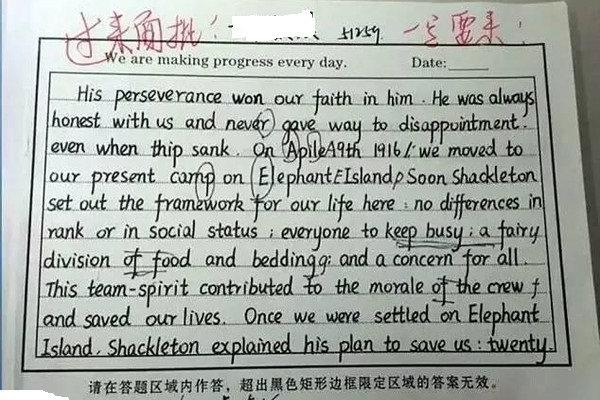 过来面批! 51259 一定要来!
We are making progress every day. Date:
His perseverance won our faith in him. He was always
honest with us and never gave way to disappointment.
even when thip sank. On Apile A9th 1916! we moved to
our present camp on Elephant Island Soon Shackleton
set out the framework for our life here: no differences in
rank or in social status; everyone to keep busy; a fairy
division of food and beddingg; and a concern for all.
This team-spirit contributed to the morale of the crew
and saved our lives. Once we were settled on Elephant
Island. Shackleton explained his plan to save us: twenty
请在答题区域内作答，超出黑色矩形边框限定区域的答案无效。